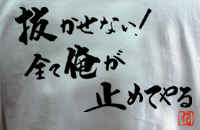 抜かせない!
全て俺が
止めてやる